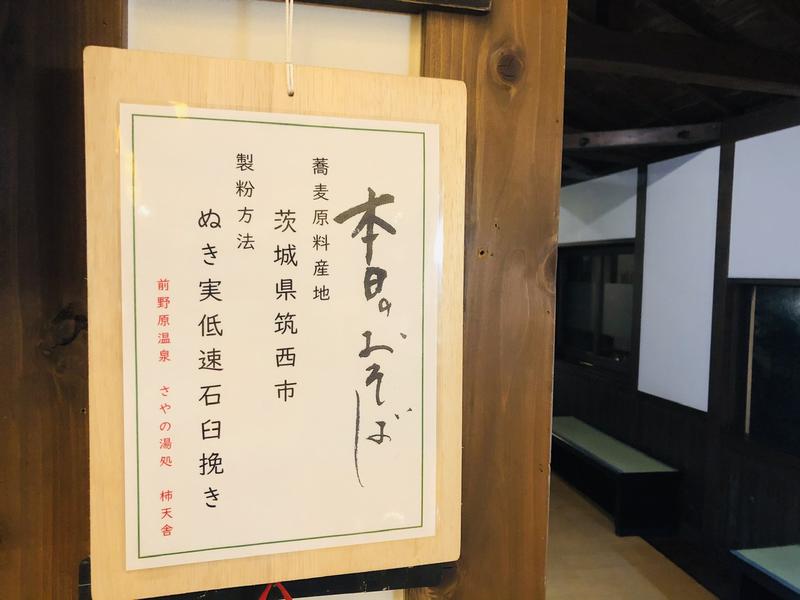 本日のおそば
蕎麦原料産地
茨城県筑西市
製粉方法
ぬき実低速石臼挽き
前野原温泉 さやの湯処 柿天舎